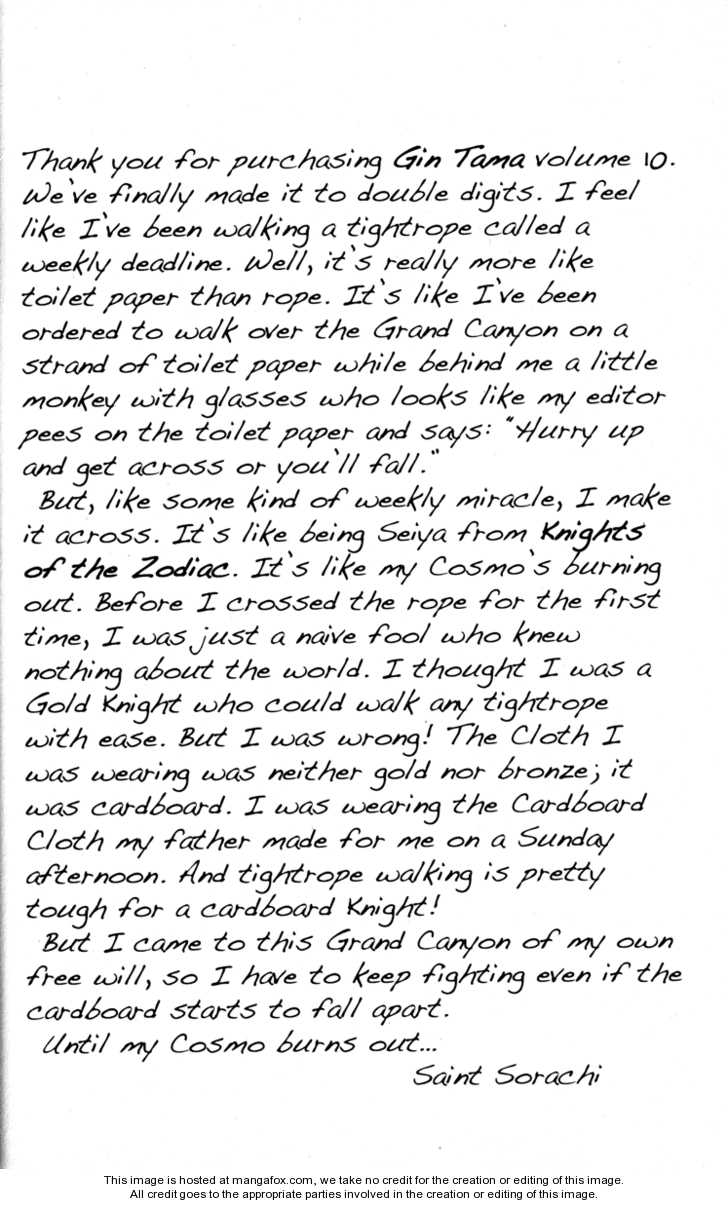 Thank you for purchasing Gin Tama volume 10.
We've finally made it to double digits. I feel
like I've been walking a tightrope called a
weekly deadline. Well, it's really more like
toilet paper than rope. It's like I've been
ordered to walk over the Grand Canyon on a
strand of toilet paper while behind me a little
monkey with glasses who looks like my editor
pees on the toilet paper and says: "Hurry up
and get across or you'll fall."
But, like some kind of weekly miracle, I make
it across. It's like being Seiya from Knights
of the Zodiac. It's like my Cosmo's burning
out. Before I crossed the rope for the first
time, I was just a naive fool who knew
nothing about the world. I thought I was a
Gold Knight who could walk any tightrope
with ease. But I was wrong! The Cloth I
was wearing was neither gold nor bronze; it
was cardboard. I was wearing the Cardboard
Cloth my father made for me on a Sunday
afternoon. And tightrope walking is pretty
tough for a cardboard Knight!
But I came to this Grand Canyon of my own
free will, so I have to keep fighting even if the
cardboard starts to fall apart.
Until my Cosmo burns out...
Saint Sorachi
This image is hosted at mangafox.com, we take no credit for the creation or editing of this image.
All credit goes to the appropriate parties involved in the creation or editing of this image.